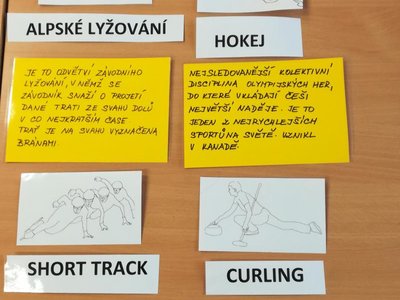 ALPSKÉ LYŽOVÁNÍ
HOKEJ
JE TO ODVĚTVÍ ZÁVODNÍHO
LYŽOVÁNÍ, V NĚMŽ SE
ZÁVODNÍK SNAŽÍ O PROJETÍ
DANÉ TRATI ZE SVAHU DOLŮ
V CO NEJKRATŠÍM ČASE
TRAŤ JE NA SVAHU VYZNAČENA
BRANAMI.
NEJSLEDOVANĚJŠÍ KOLEKTIVNÍ
DISCIPLINA OLYMPIJSKÝCH HER,
DO KTERÉ VKLÁDAJÍ ČEŠI
NEJVĚTŠÍ NADĚJE. JE TO
JEDEN Z NEJRYCHLEJŠÍCH
SPORTŮ NA SVĚTĚ. VZNIKL
V KANADĚ.
SHORT TRACK
CURLING